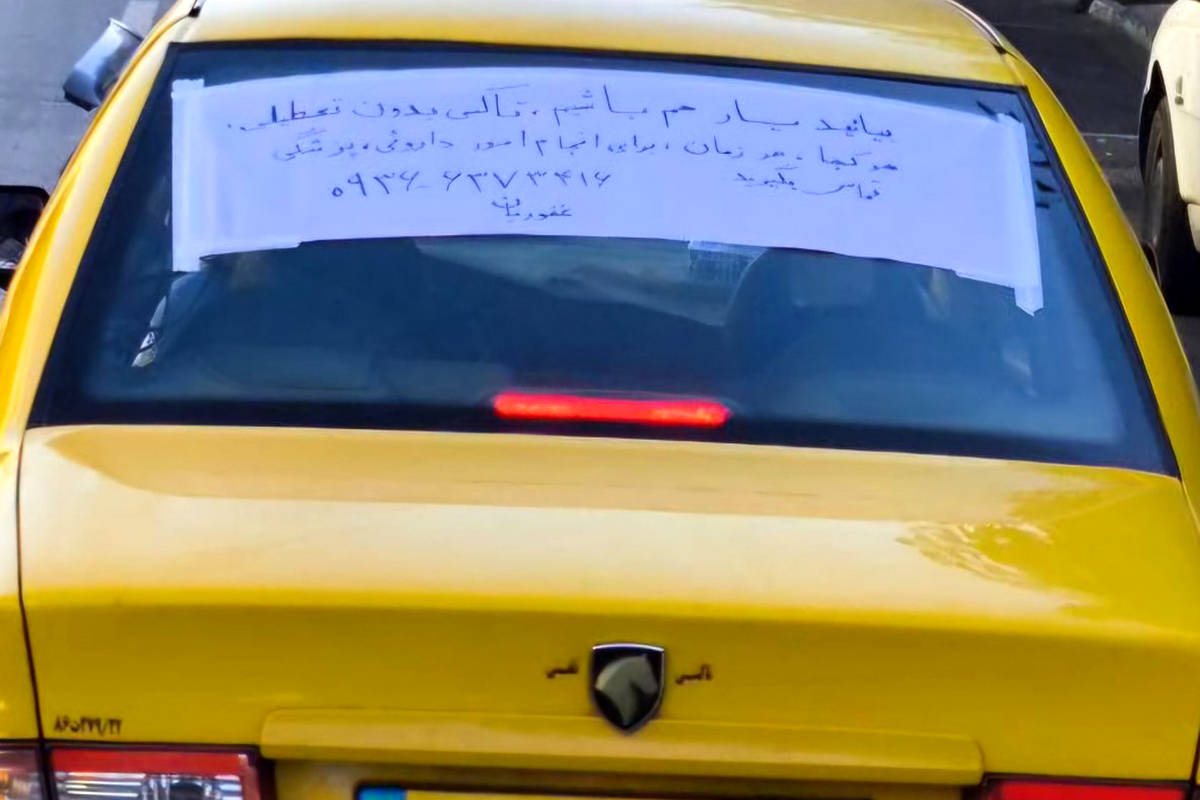 بیائید بیار هم باشیم، تاکسی بدون تعطیلی.
هر کجا، هر زمان، برای انجام امور داروئی، پزشکی
تماس بگیرید ۰۹۳۶-۶۳۷۳۴۱۶
غفوریان
تاکسی تلفنی